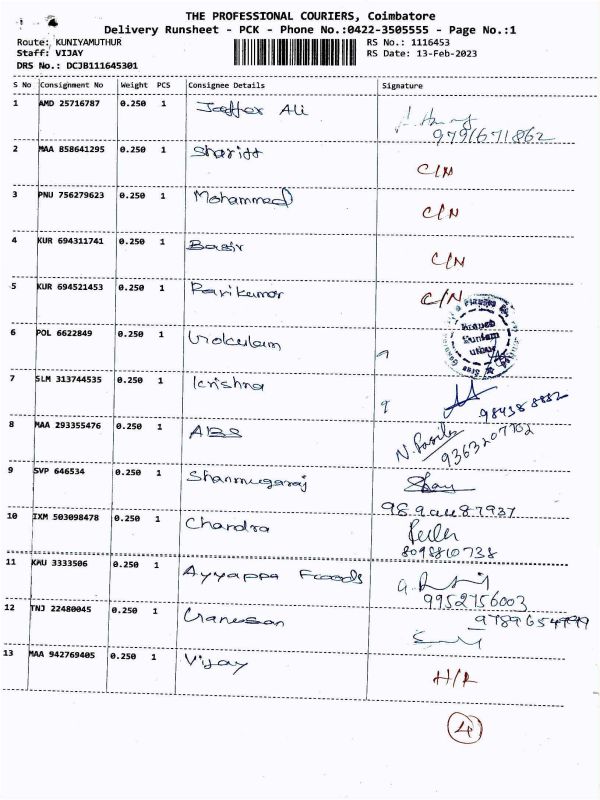 THE PROFESSIONAL COURIERS, Coimbatore
Delivery Runsheet - PCK - Phone No.:0422-3505555 - Page No.:1
Route: KUNIYAMUTHUR RS No.: 1116453
Staff: VIJAY RS Date: 13-Feb-2023
DRS No.: DCJB111645301
S No Consignment No Weight PCS Consignee Details Signature
1 AMD 25716787 0.250 1 Jaffer Ali
9791671862
2 MAA 858641295 0.250 1 Shariff C/N
3 PNU 756279623 0.250 1 Mohammed C/N
4 KUR 694311741 0.250 1 Basir C/N
5 KUR 694521453 0.250 1 Ravikumar C/N
6 POL 6622849 0.250 1 Gokulam
7 SLM 313744535 0.250 1 Krishna
8 MAA 293355476 0.250 1 ABS
9363207702
9 SVP 646534 0.250 1 Shanmugaraj
10 IXM 503098478 0.250 1 Chandra
8098810738
11 KMU 3333506 0.250 1 Ayyappa Foods
9952756003
12 TNJ 22480045 0.250 1 Ganesan
13 MAA 942769405 0.250 1 Vijay H/R
4